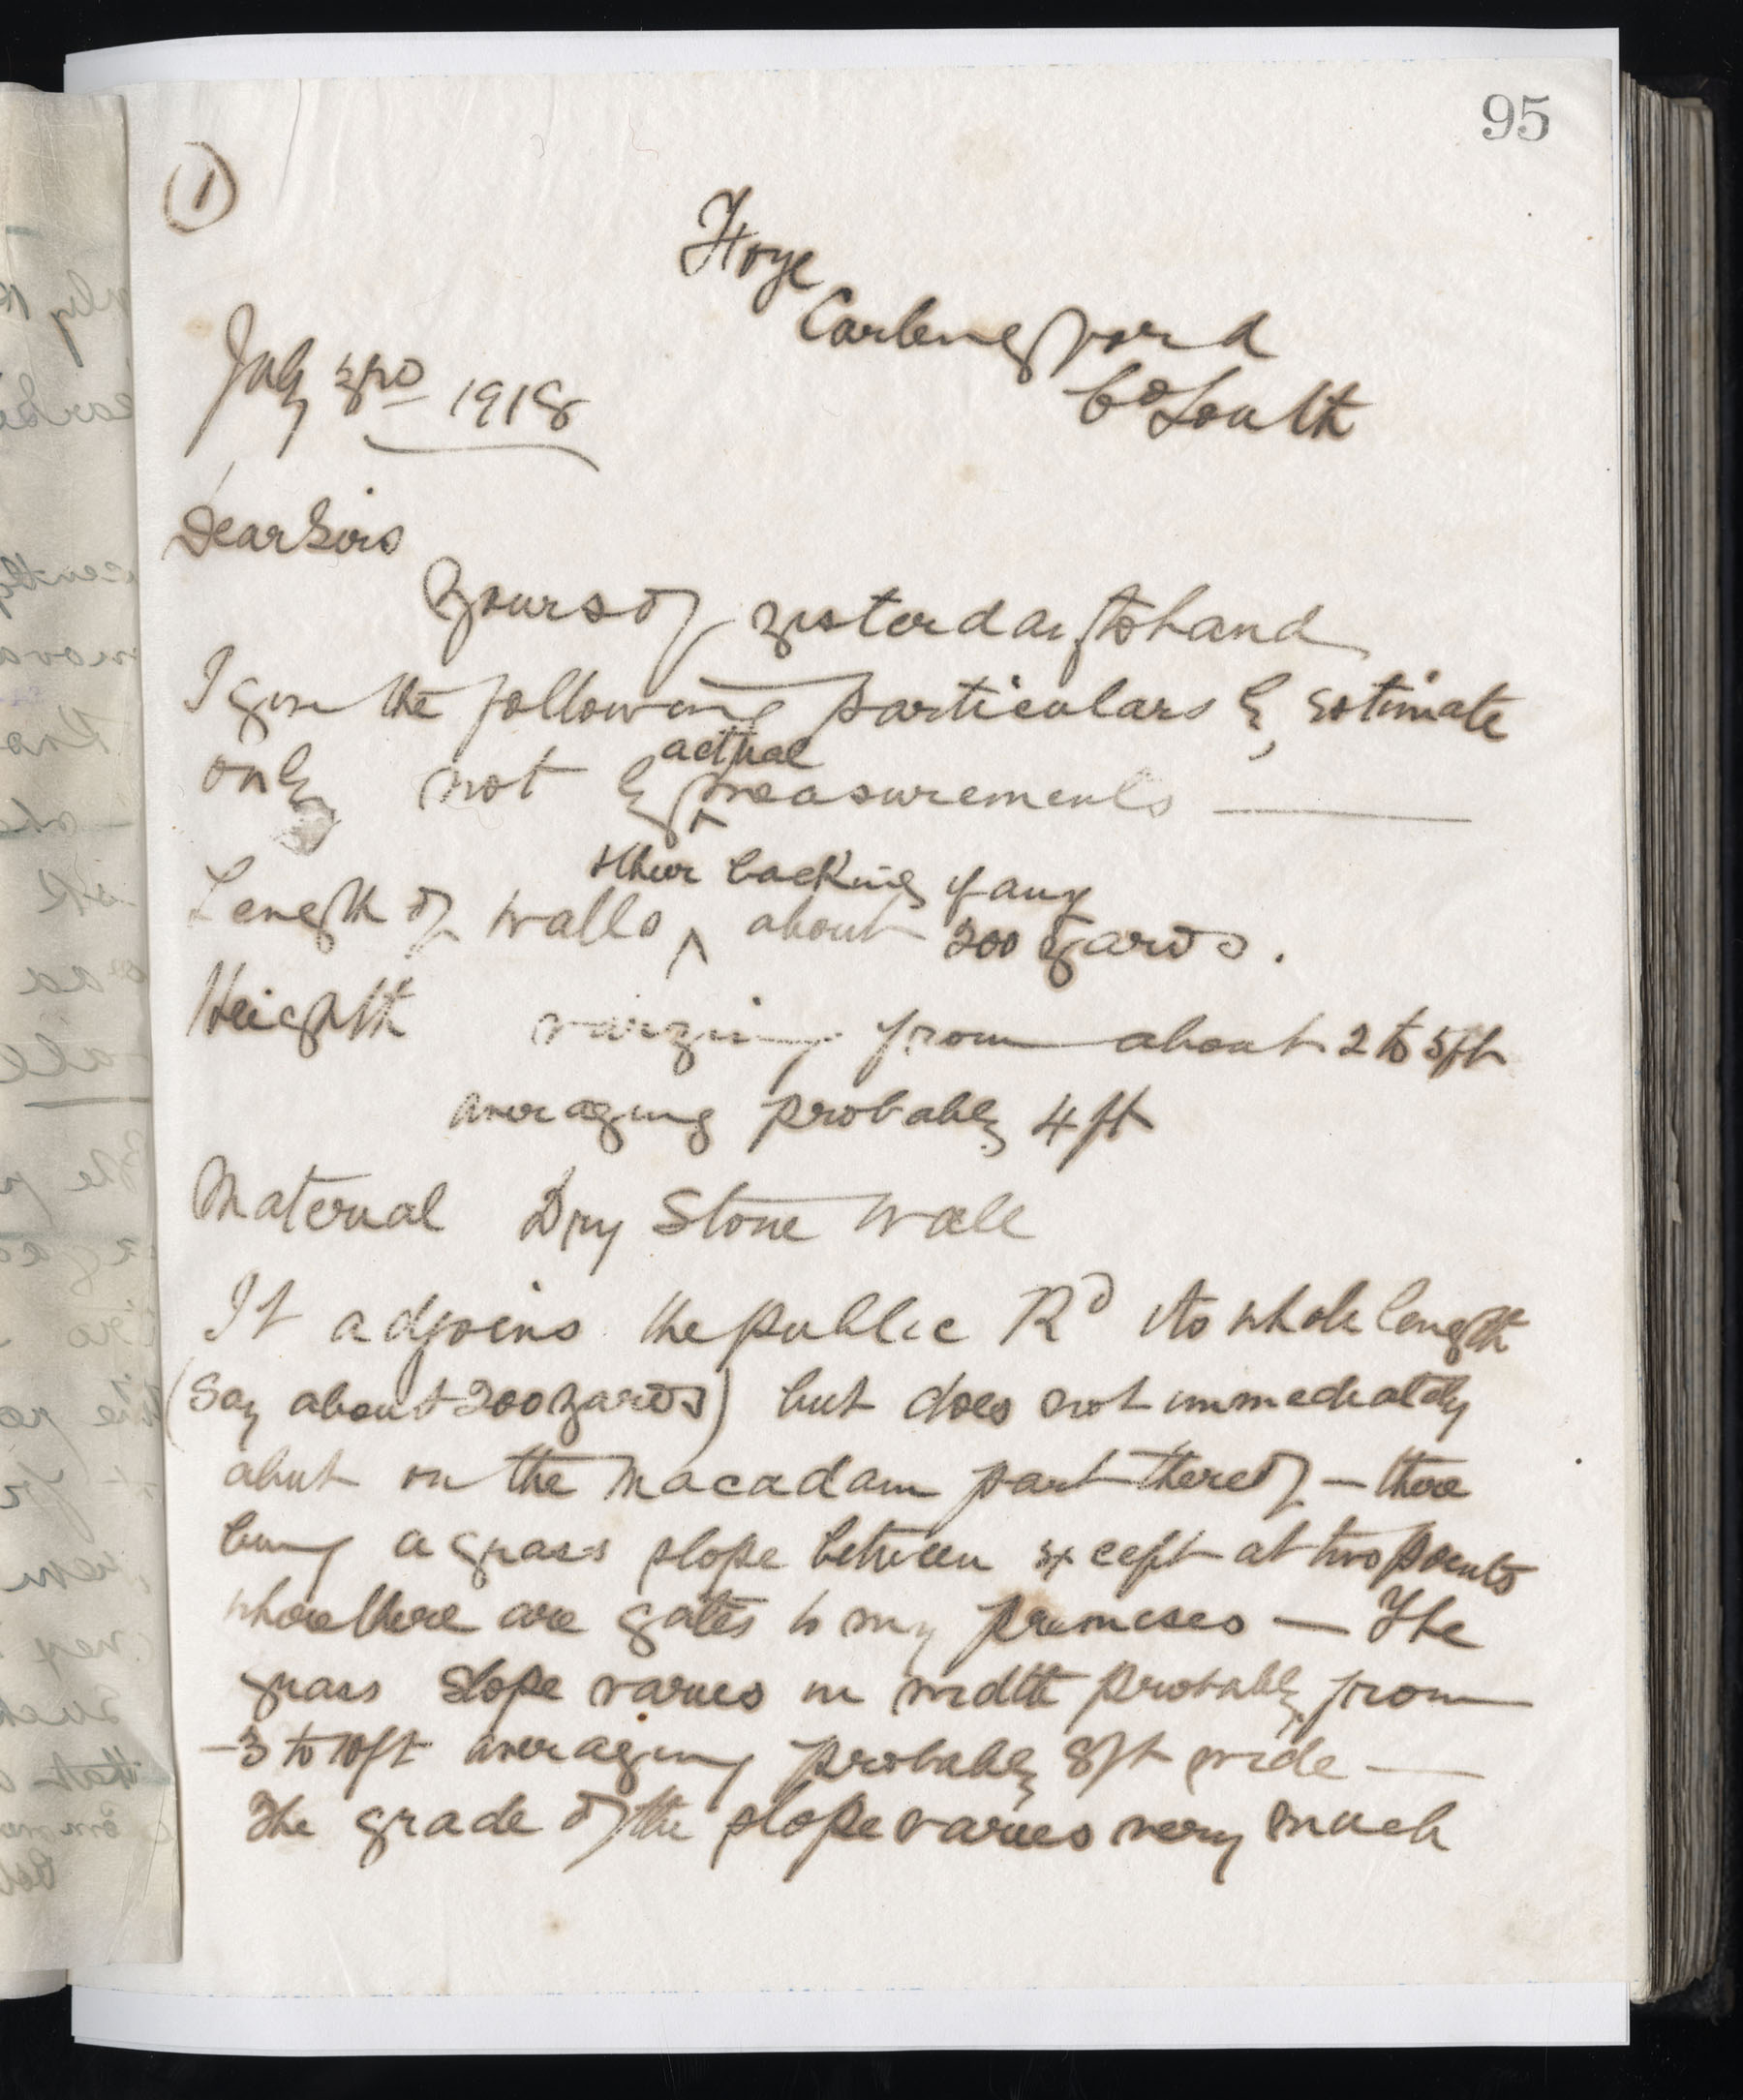 95
1
Hoye
Carlingford
Co Louth
July 3rd 1918
Dear Sirs
Yours of yesterday to hand
I give the following particulars by estimate
only not by actual measurements —
Length of walls & their backing if any about 200 yards.
Height varying from about 2 to 5 ft
averaging probably 4 ft
Material Dry Stone Wall
It adjoins the public Rd its whole length
(say about 200 yards) but does not immediately
abut on the Macadam part thereof — there
being a grass slope between except at two points
where there are gates to my premises — The
grass slope varies in width probably from
3 to 10 ft averaging probably 8 ft wide —
The grade of the slope varies very much